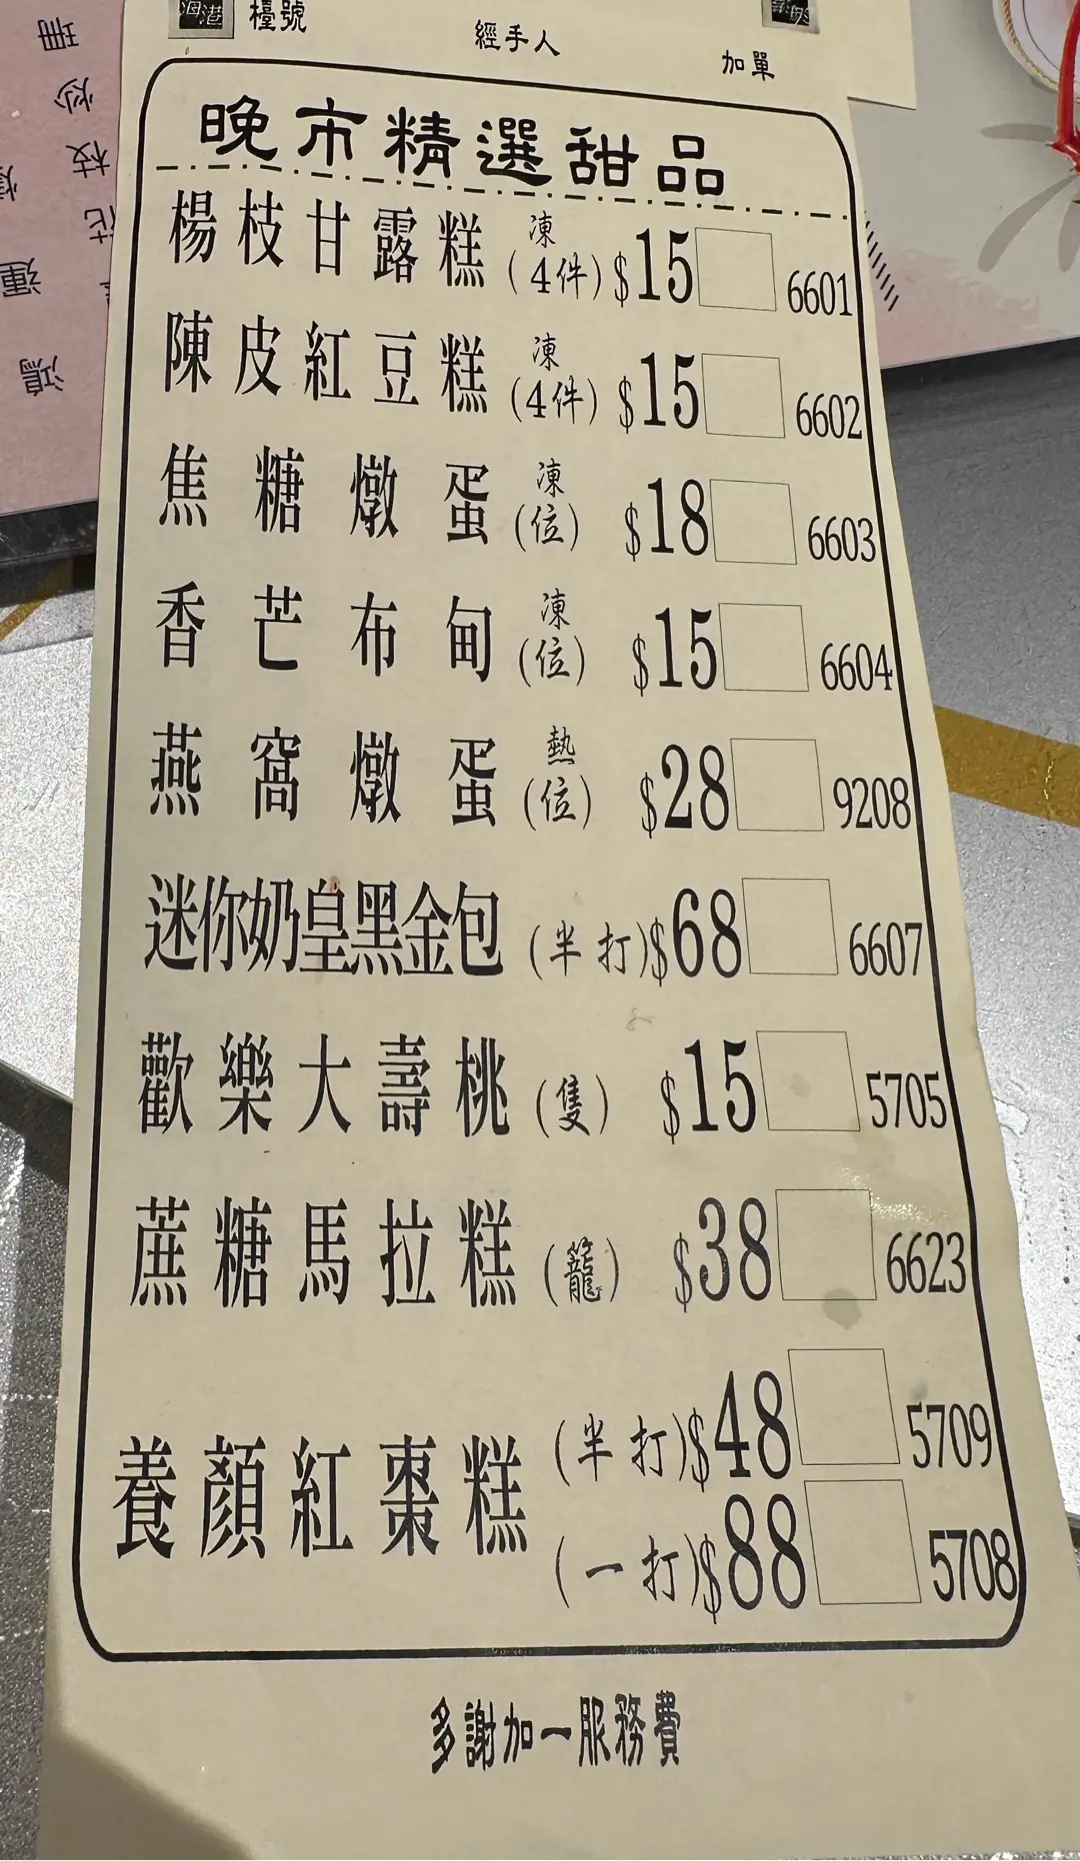 海港 檯號 經手人 加單
晚市精選甜品
楊枝甘露糕 凍(4件) $15 6601
陳皮紅豆糕 凍(4件) $15 6602
焦糖燉蛋 凍(位) $18 6603
香芒布甸 凍(位) $15 6604
燕窩燉蛋 熱(位) $28 9208
迷你奶皇黑金包 (半打) $68 6607
歡樂大壽桃 (隻) $15 5705
蔗糖馬拉糕 (籠) $38 6623
養顏紅棗糕 (半打) $48 5709
(一打) $88 5708
多謝加一服務費